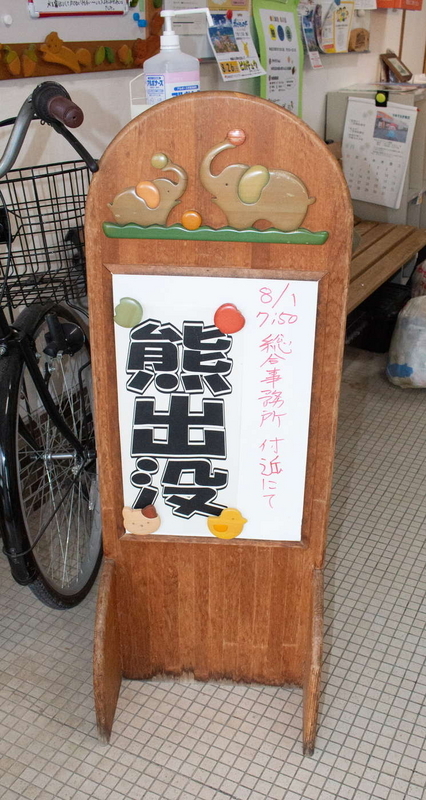 8/1
7:50
総合事務所 付近にて
熊出没